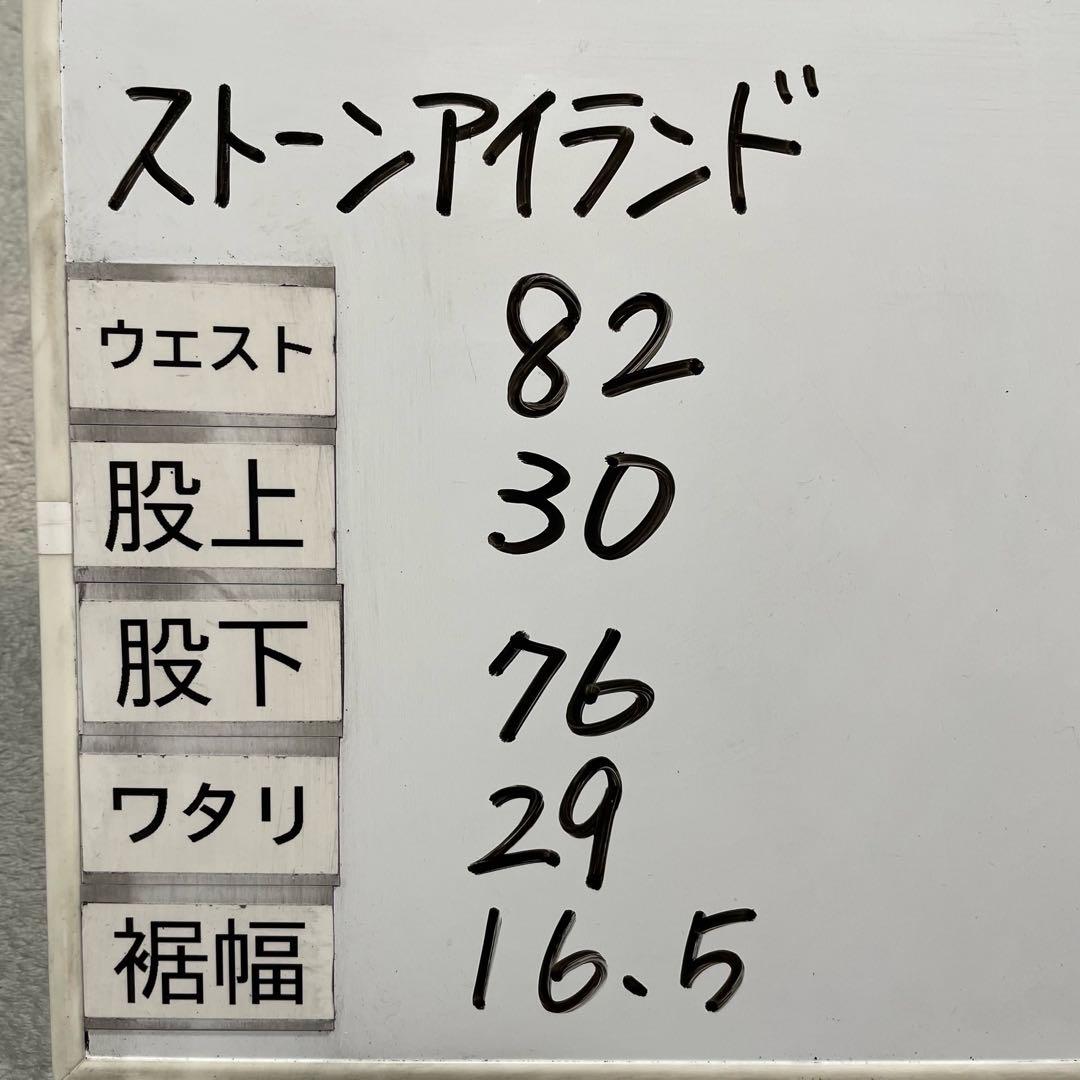 ストーンアイランド
ウエスト 82
股上 30
股下 76
ワタリ 29
裾幅 16.5